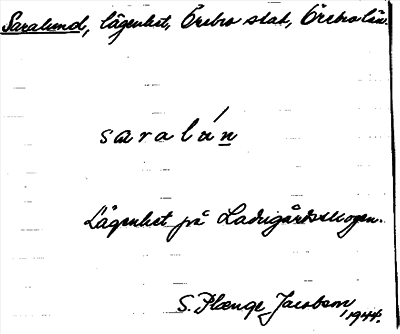 Saralund, lägenhet, Örebro stad, Örebro län.
saralún
Lägenhet på Ladugårdsskogen.
S. Plænge Jacobson, 1944.